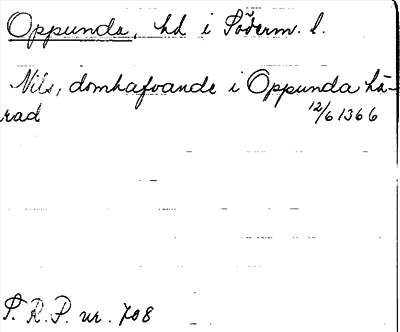 Oppunda, hd i Söderm. l.
Nils, domhafvande i Oppunda hä-
rad 12/6 1366
S. R. P. nr. 708